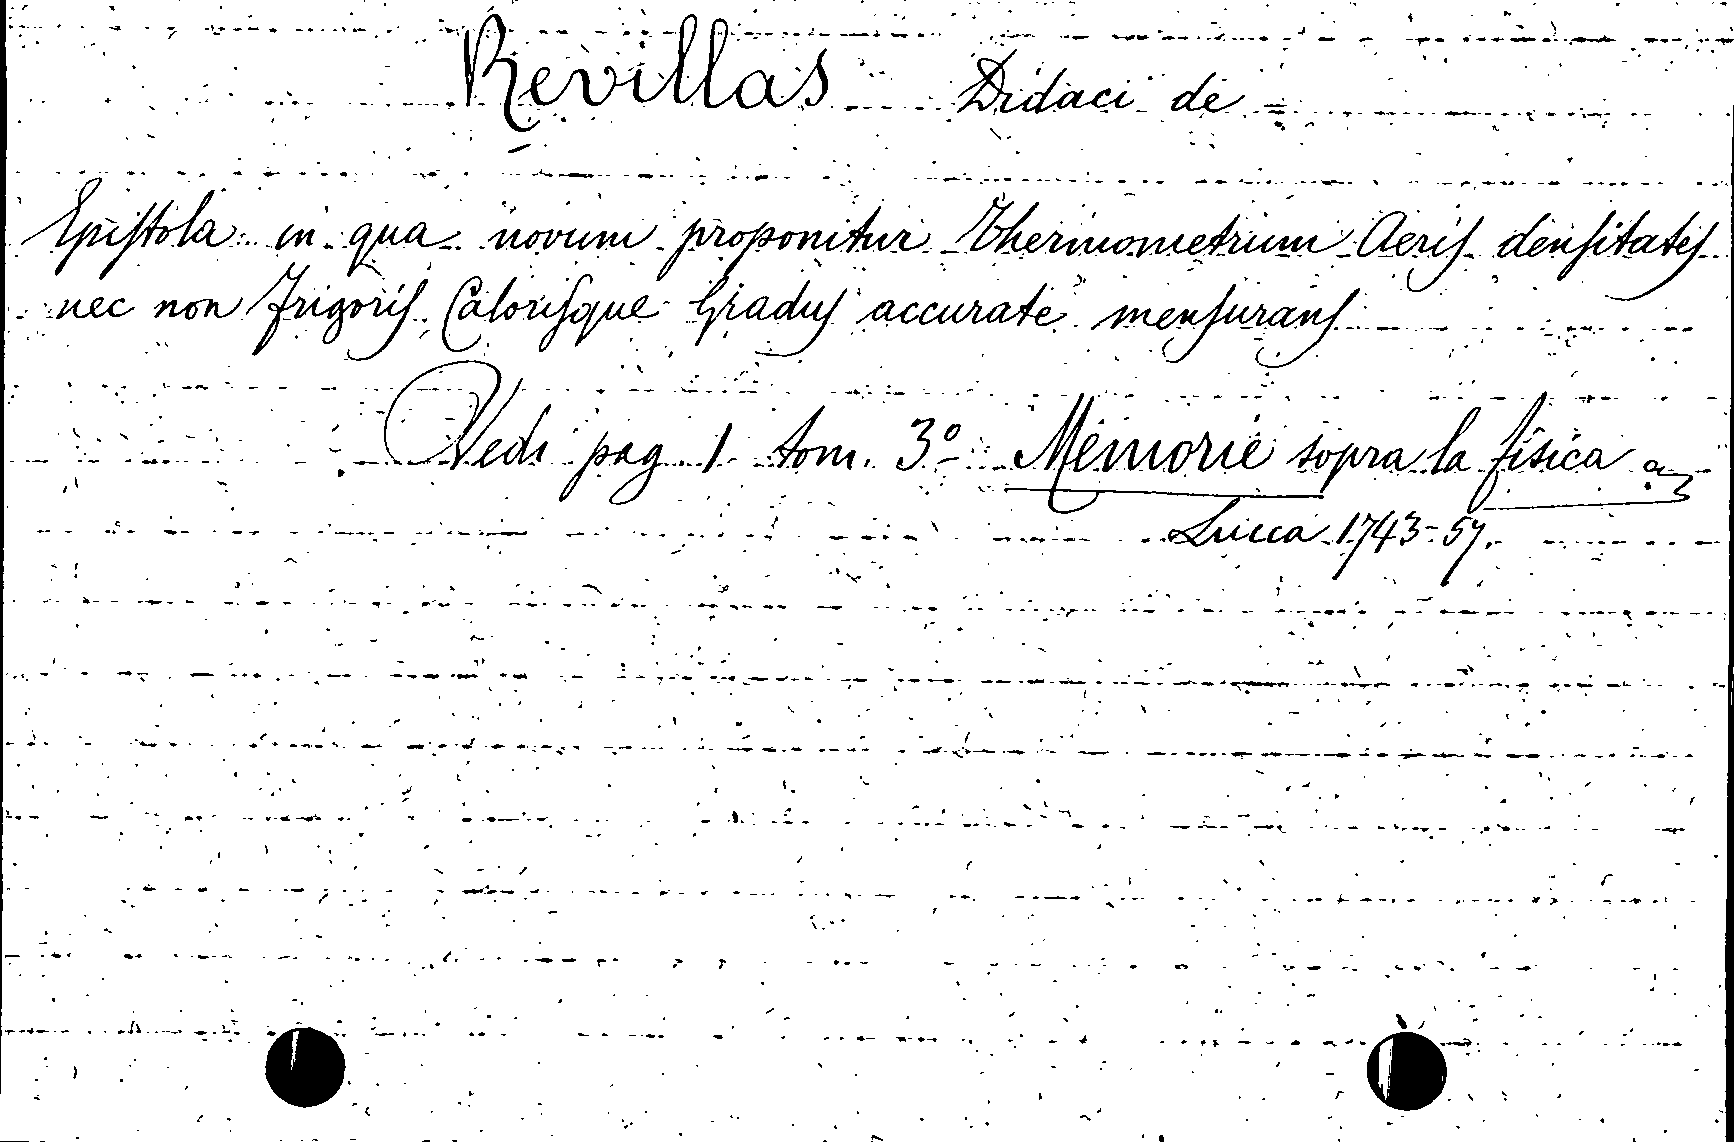 Revillas Didaci de =
Epiſtola in qua novum proponitur Thermometrum Aeriſ denſitateſ
nec non Frigoriſ Caloriſque Graduſ accurate menſuranſ
Vedi pag. 1 tom. 3º Memorie sopra la fisica
Lucca 1743-57.